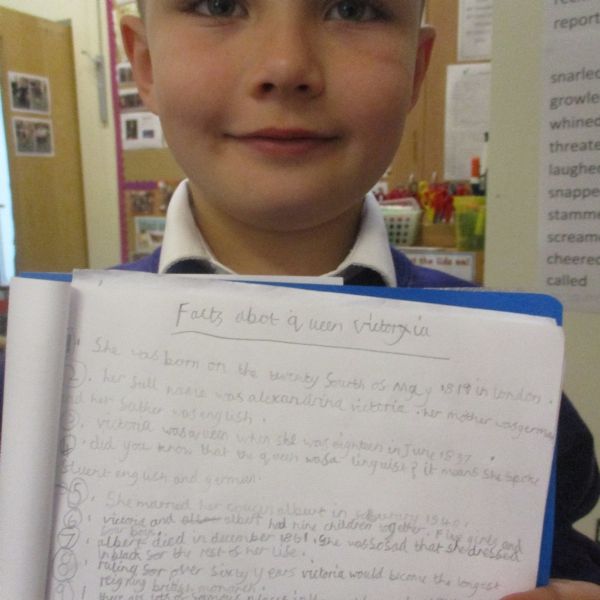 Facts abot queen victoria
1. She was born on the twenty fourth of May 1819 in London.
2. her full name was alexandrina victoria. her mother was german
and her father was english.
3. victoria was queen when she was eighteen in June 1837.
4. did you know that the queen was a linguist? it means she spoke
fluent english and german.
5. She married her cousin albert in 1840.
6. victoria and albert had nine children together. Five girls and
four boys.
7. albert died in december 1861. She was so sad that she dressed
in black for the rest of her life.
8. ruling for over sixty years victoria would become the longest
reigning british monarch.
report
snarled
growle
whined
threate
laughed
snappe
stamme
scream
cheered
called